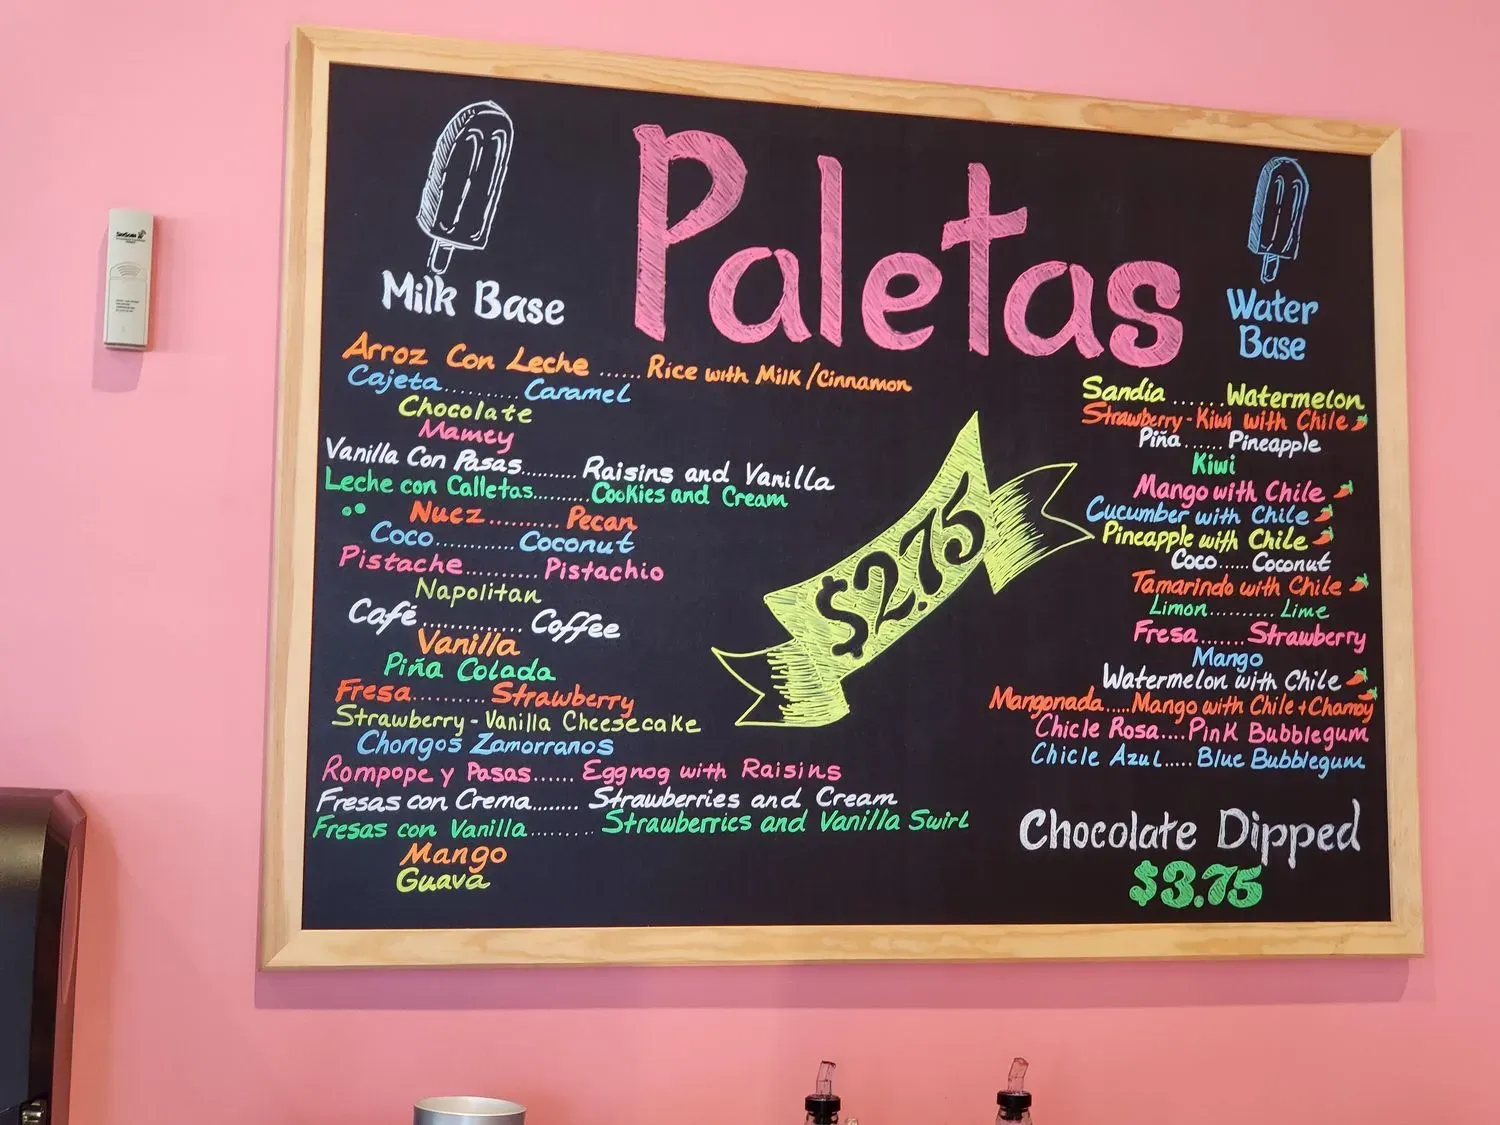 Paletas
Milk Base
Arroz Con Leche ...... Rice with Milk/Cinnamon
Cajeta.......... Caramel
Chocolate
Mamey
Vanilla Con Pasas.......... Raisins and Vanilla
Leche con Calletas.......... Cookies and Cream
Nuez.......... Pecan
Coco............ Coconut
Pistache.......... Pistachio
Napolitan
Café............. Coffee
Vanilla
Piña Colada
Fresa.......... Strawberry
Strawberry-Vanilla Cheesecake
Chongos Zamorranos
Rompope y Pasas...... Eggnog with Raisins
Fresas con Crema........ Strawberries and Cream
Fresas con Vanilla......... Strawberries and Vanilla Swirl
Mango
Guava
$2.75
Water
Base
Sandía ...... Watermelon
Strawberry-Kiwi with Chile
Piña...... Pineapple
Kiwi
Mango with Chile
Cucumber with Chile
Pineapple with Chile
Coco...... Coconut
Tamarindo with Chile
Limon.......... Lime
Fresa....... Strawberry
Mango
Watermelon with Chile
Mangonada.....Mango with Chile+Chamoy
Chicle Rosa....Pink Bubblegum
Chicle Azul..... Blue Bubblegum
Chocolate Dipped
$3.75